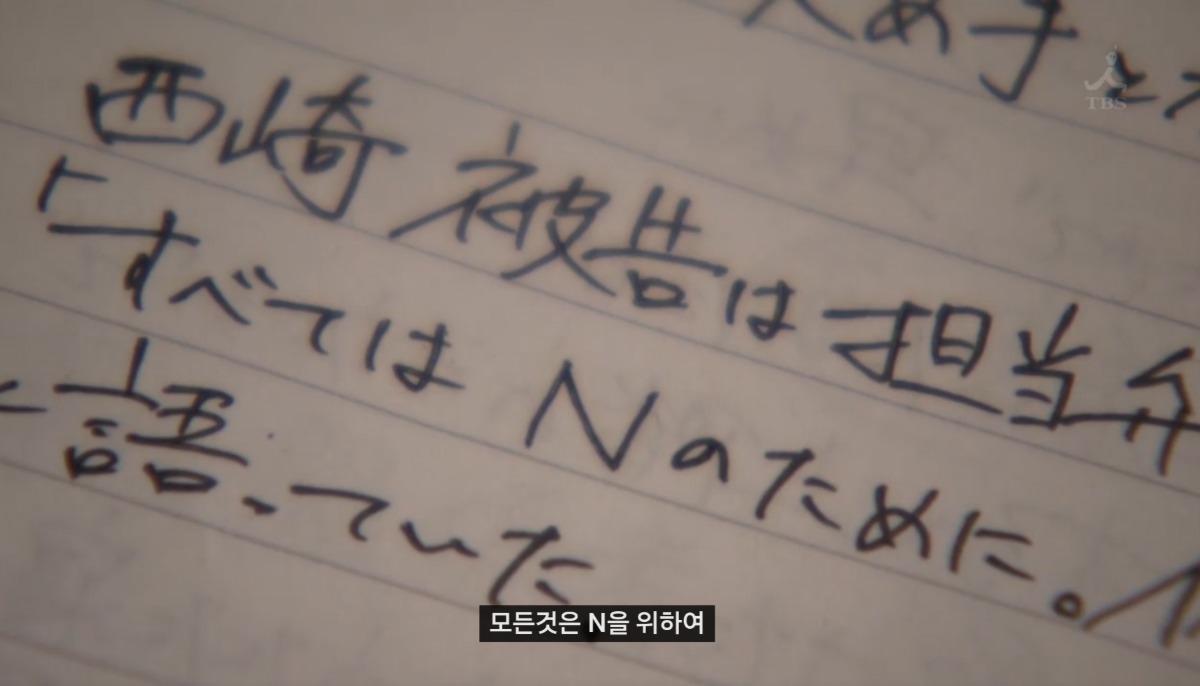 め手と
TBS
西崎 被告は担当弁
「すべては Nのために。
と語っていた
모든것은 N을 위하여